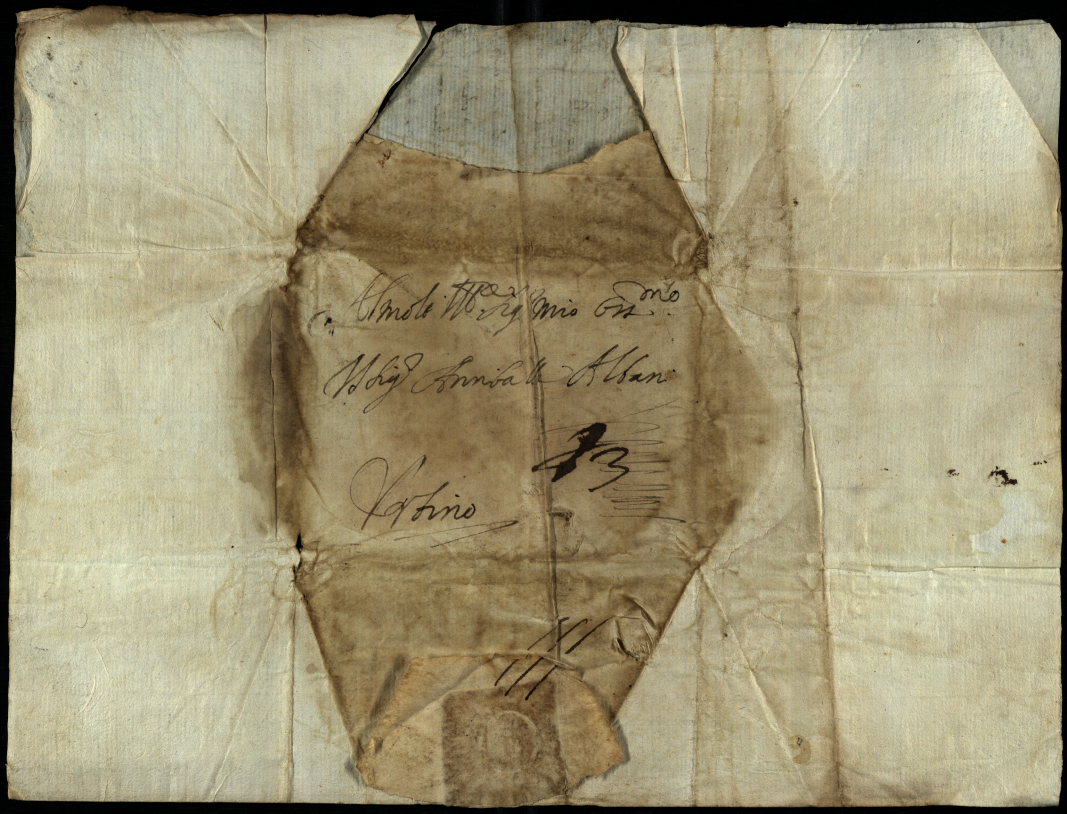 Al molt' Ill.re Sig.r mio Oss.mo
Il Sig.r Annibale Albani
23
Urbino